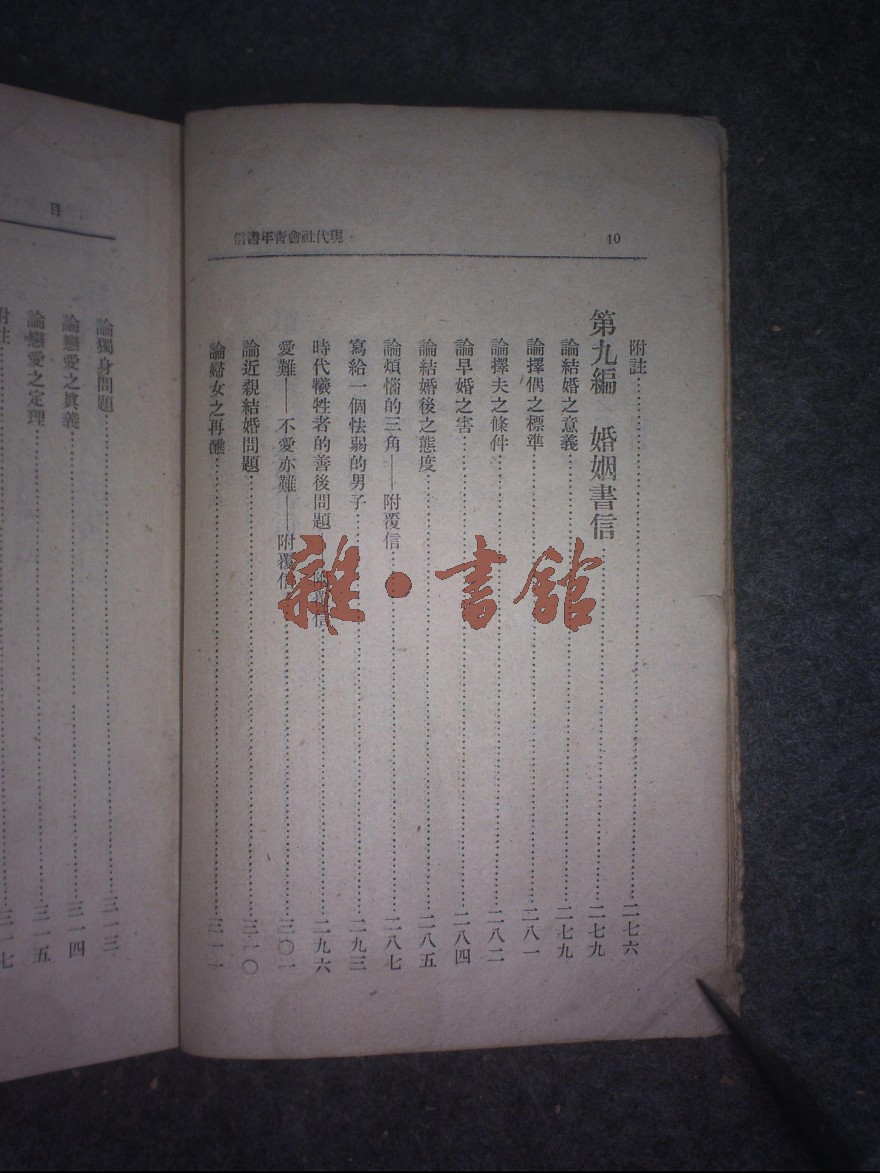 10
現代社會青年書信
附註……二七六
第九編 婚姻書信……二七九
論結婚之意義……二七九
論擇偶之標準……二八一
論擇夫之條件……二八二
論早婚之害……二八四
論結婚後之態度……二八五
論煩惱的三角——附覆信……二八七
寫給一個怯弱的男子……二九三
時代犧牲者的善後問題——附覆信……二九六
愛難——不愛亦難——附覆信……三〇一
論近親結婚問題……三一〇
論婦女之再醮……
目
論獨身問題……三一三
論戀愛之眞義……三一四
論戀愛之定理……三一五
附註……三一七
雜·書館